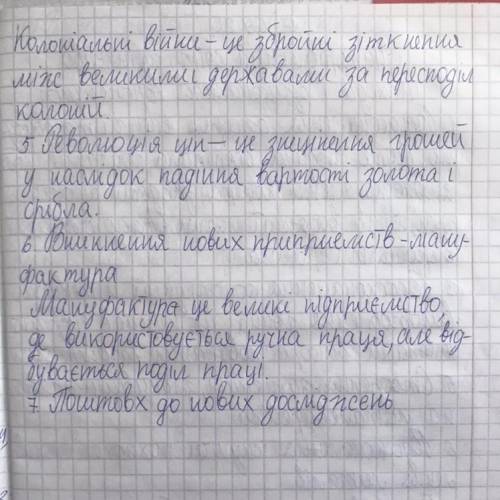 Колоніальні війни - це збройні зіткнення
між великими державами за пересподіл
колоній.
5 Революція цін - це знецінення грошей
у наслідок падіння вартості золота і
срібла.
6 Виникнення нових приприємств - ману-
фактура
Мануфактура це великі підприємство,
де використовується ручна праця, але від-
бувається поділ праці.
7 Поштовх до нових досліджень